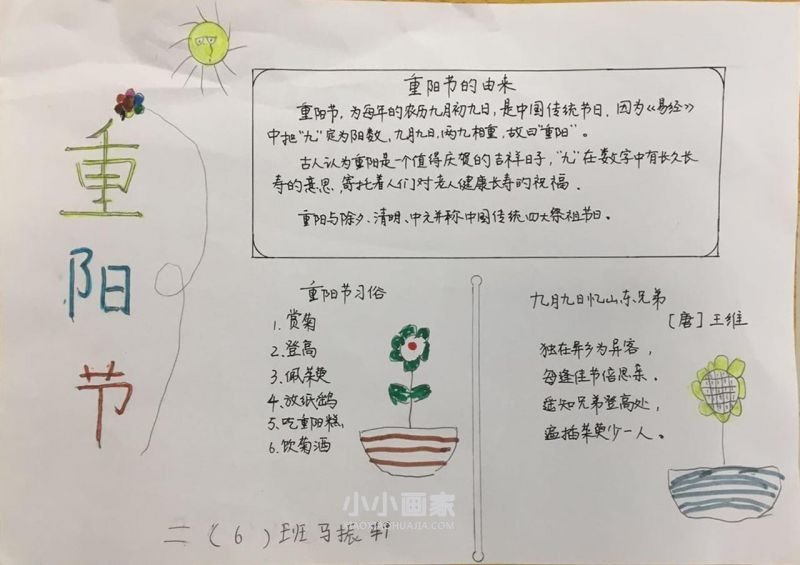 重阳节
重阳节的由来
重阳节，为每年的农历九月初九日，是中国传统节日。因为《易经》
中把“九”定为阳数，九月九日，两九相重，故曰“重阳”。
古人认为重阳是一个值得庆贺的吉祥日子，“九”在数字中有长久长
寿的意思，寄托着人们对老人健康长寿的祝福。
重阳与除夕、清明、中元并称中国传统四大祭祖节日。
重阳节习俗
1、赏菊
2、登高
3、佩茱萸
4、放纸鹞
5、吃重阳糕
6、饮菊酒
九月九日忆山东兄弟
［唐］王维
独在异乡为异客，
每逢佳节倍思亲。
遥知兄弟登高处，
遍插茱萸少一人。
二（6）班马振轩
小小画家
XIAOXIAOHUAJIA.COM